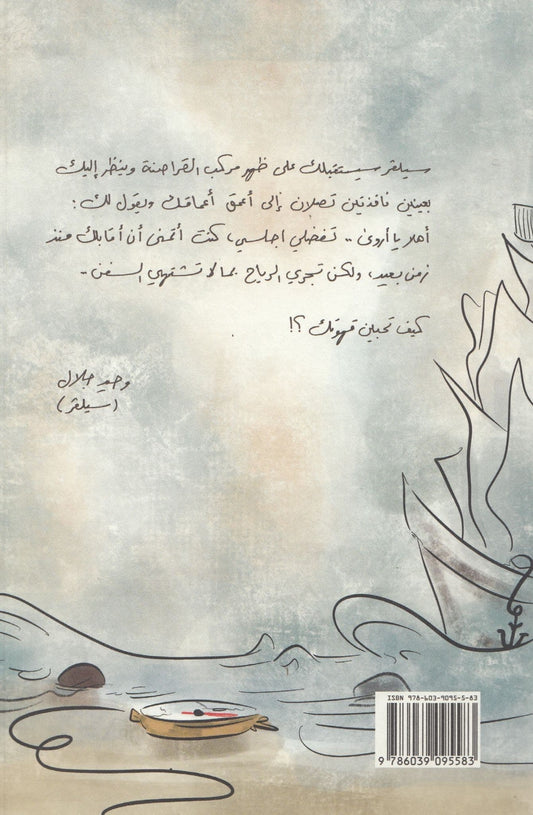 سيلفر سيستقبلك على ظهر مركب القراصنة وينظر إليك
بعينين نافذتين تصلان إلى أعمق أعماقك ويقول لك :
أهلا يا أروى .. تفضلي اجلسي، كنت أتمنى أن أقابلك منذ
زمن بعيد، ولكن تجري الرياح بما لا تشتهي السفن ..
كيف تحبين قهوتك ؟!
وحيد جلال
(سيلفر)
ISBN 978-603-9095-5-83
9 786039 095583